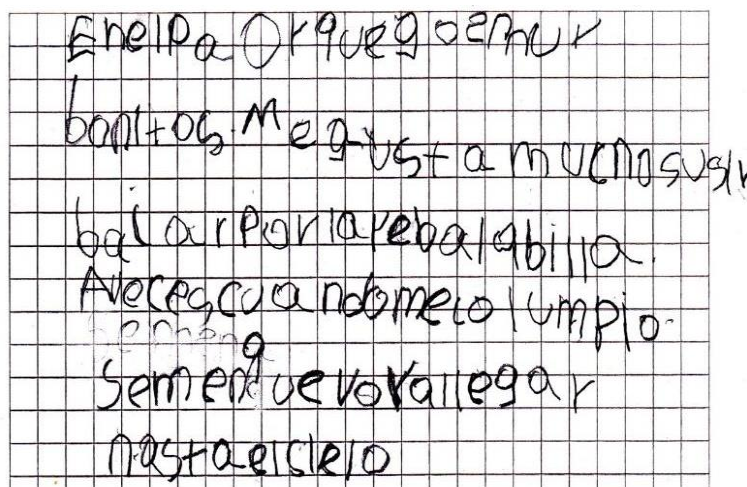 EnelPa OrquegoemUr
bonitos. Me gusta mucho susir
balarPorlarebalabilla.
Avecescuandomecolumpio.
q
Semenquevoyallegar
hastaelsielo